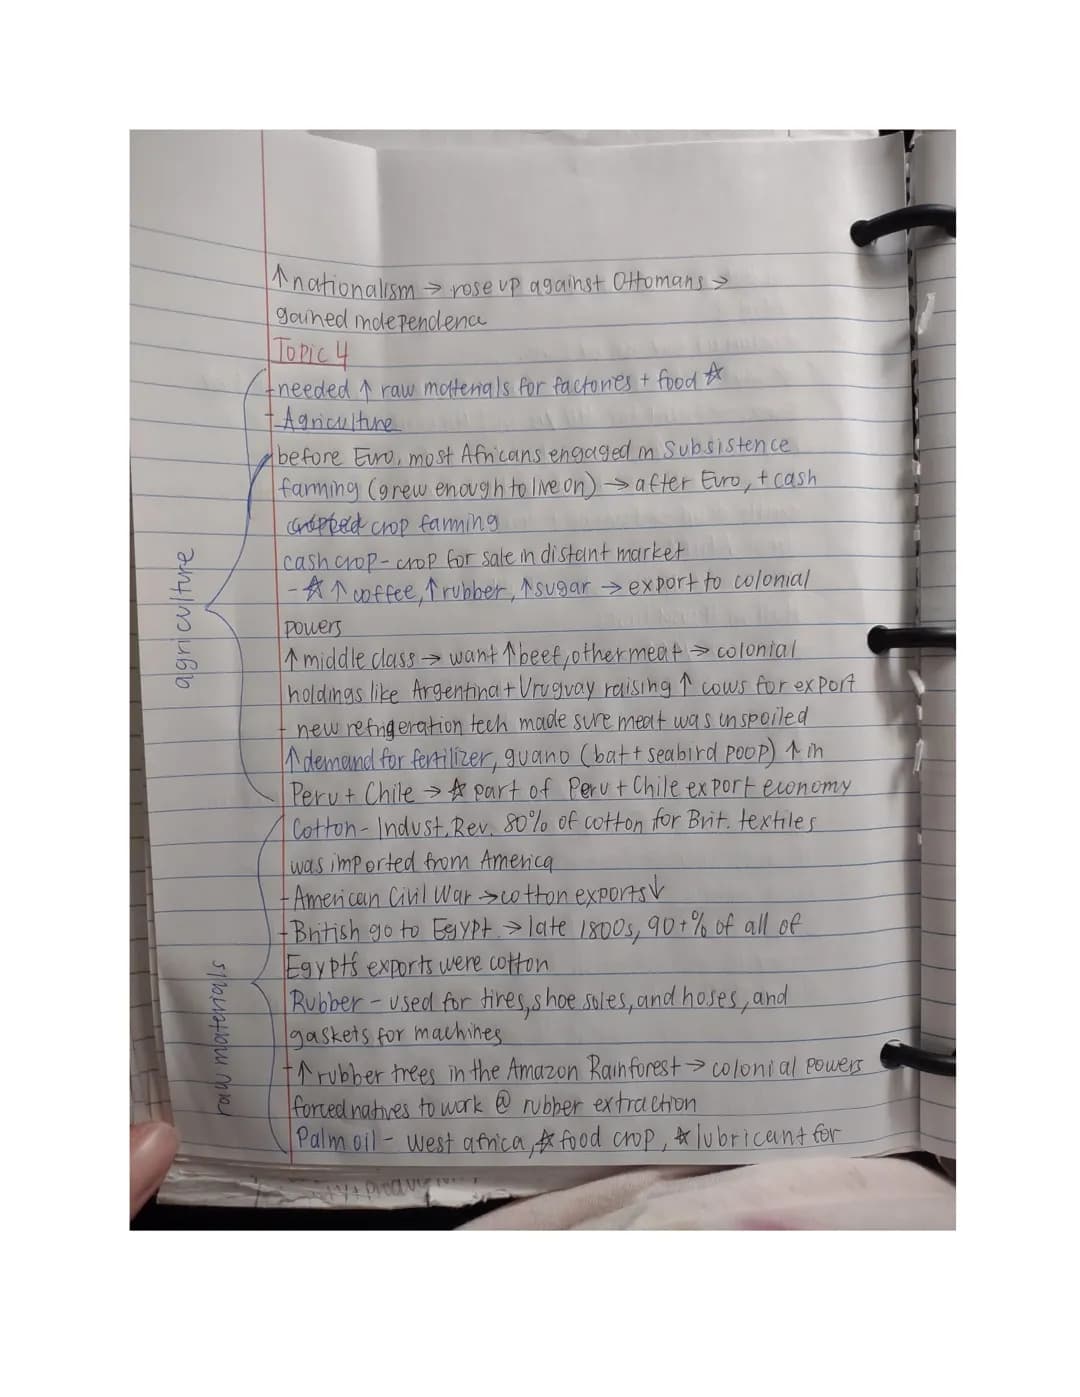 ↑nationalism → rose up against Ottomans →
gained independence
Topic 4
-needed ↑ raw materials for factories + food ☆
- Agriculture
before Euro, most Africans engaged in Subsistence
farming (grew enough to live on) → after Euro, + cash
crop farming
cash crop - crop for sale in distant market
- ☆ ↑ coffee, ↑rubber, ↑sugar → export to colonial
powers
↑ middle class → want ↑beef, other meat → colonial
holdings like Argentina + Uruguay raising ↑ cows for export
- new refrigeration tech made sure meat was unspoiled
↑demand for fertilizer, guano (bat + seabird poop) ↑ in
Peru + Chile → ☆ part of Peru + Chile export economy
agriculture
Cotton - Indust. Rev. 80% of cotton for Brit. textiles
was imported from America
- American Civil War → cotton exports↓
- British go to Egypt → late 1800s, 90+% of all of
Egypt's exports were cotton
Rubber - used for tires, shoe soles, and hoses, and
gaskets for machines
- ↑ rubber trees in the Amazon Rainforest → colonial powers
forced natives to work @ rubber extraction
Palm oil - west africa, ☆ food crop, ☆ lubricant for
raw materials